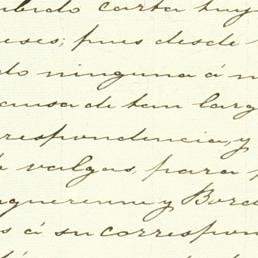 bido carta tuy
eses; pues desde
do ninguna á m
causa de tan larg
respondencia, y
valgas, para
guerenne y Bord
s á su correspon